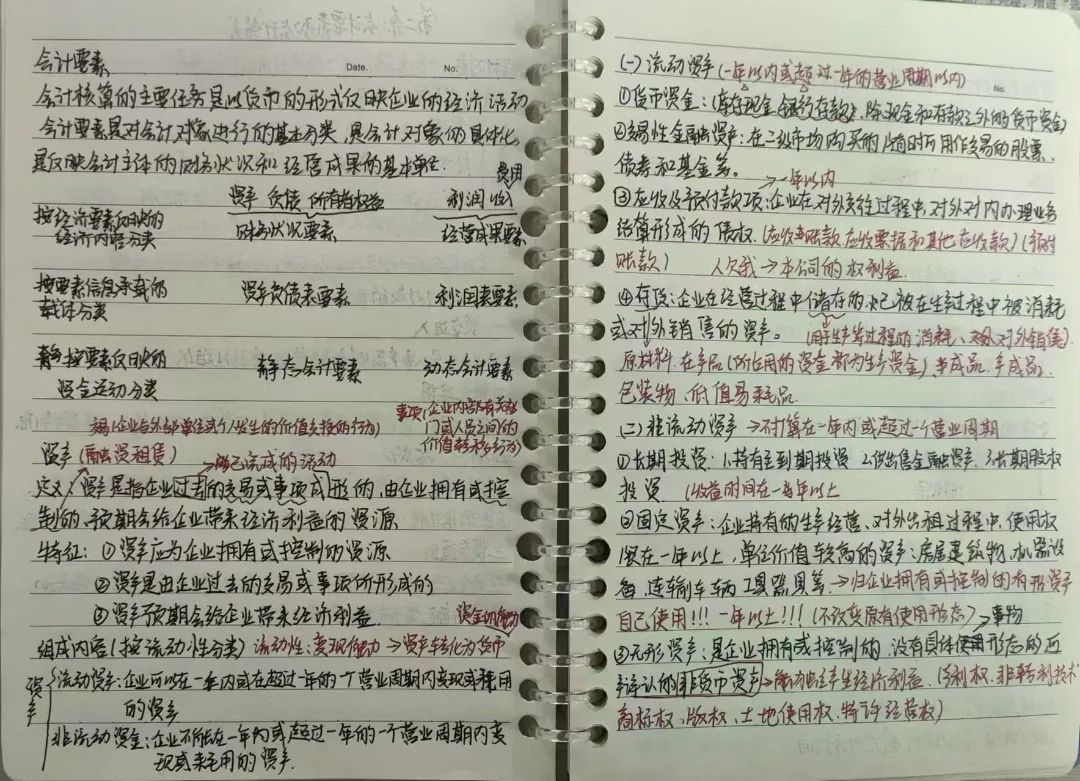 会计要素
Date. No.
会计核算的主要任务是以货币的形式反映企业的经济活动
会计要素是对会计对象进行的基本分类，是会计对象的具体化，
是反映会计主体的财务状况和经营成果的基本单位.
费用
资产 负债 所有者权益 利润 收入
按经济要素反映的 财务状况要素 经营成果要素
经济内容分类
按要素信息承载的 资产负债表要素 利润表要素
载体分类
按要素反映的 静态会计要素 动态会计要素
资金运动分类
事项(企业内部有关部
门或人员之间的
价值转移行为)
交易(企业与外部单位或个人发生的价值交换的行为)
资产(融资租赁) →已完成的活动
定义 资产是指企业过去的交易或事项或形的，由企业拥有或控
制的、预期会给企业带来经济利益的资源
特征：①资产应为企业拥有或控制的资源
②资产是由企业过去的交易或事项所形成的
③资产预期会给企业带来经济利益.
资金的能力
组成内容(按流动性分类) 流动性：变现能力→资产转化为货币
资产
流动资产：企业可以在一年内或在超过一年的一个营业周期内变现或耗用
的资产
非流动资金：企业不能在一年内或超过一年的一个营业周期内变
现或耗用的资产.
(一)流动资产(一年以内或超过一年的营业周期以内)
No.
①货币资金：(库存现金、银行存款)，除现金和存款之外的货币资金)
②交易性金融资产：在二级市场购买的，随时可用作交易的股票、
债券和基金等.
→一年以内
③应收及预付款项：企业在对外交往过程中，对外对内办理业务
结算形成的债权.(应收账款 应收票据和其他应收款)(预付
账款) 人欠我→本公司的权利益.
④存货：企业在经营过程中储存的，已被在生产过程中被消耗
或对外销售的资产. (用于生产过程的消耗、对外销售)
原材料、在产品(所占用的资金都为生产资金)、成品、半成品、
包装物、低值易耗品.
(二)非流动资产→不打算在一年内或超过一个营业周期
①长期投资：1.持有至到期投资 2.可供出售金融资产 3.长期股权
投资 (收益时间在一年以上
②固定资产：企业持有的生产经营、对外出租过程中，使用权
限在一年以上，单位价值较高的资产：房屋建筑物、机器设
备、运输车辆、工具器具等.→归企业拥有或控制的有形资产
自己使用!!! 一年以上!!!(不改变原有使用形态)→事物
③无形资产：是企业拥有或控制的，没有具体使用形态的可
辨认的非货币资产→能为企业产生经济利益.(专利权、非专利技术
商标权、版权、土地使用权、特许经营权)